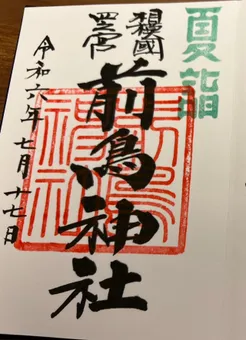 夏詣
相模國
四之宮
前鳥神社
令和六年七月十七日